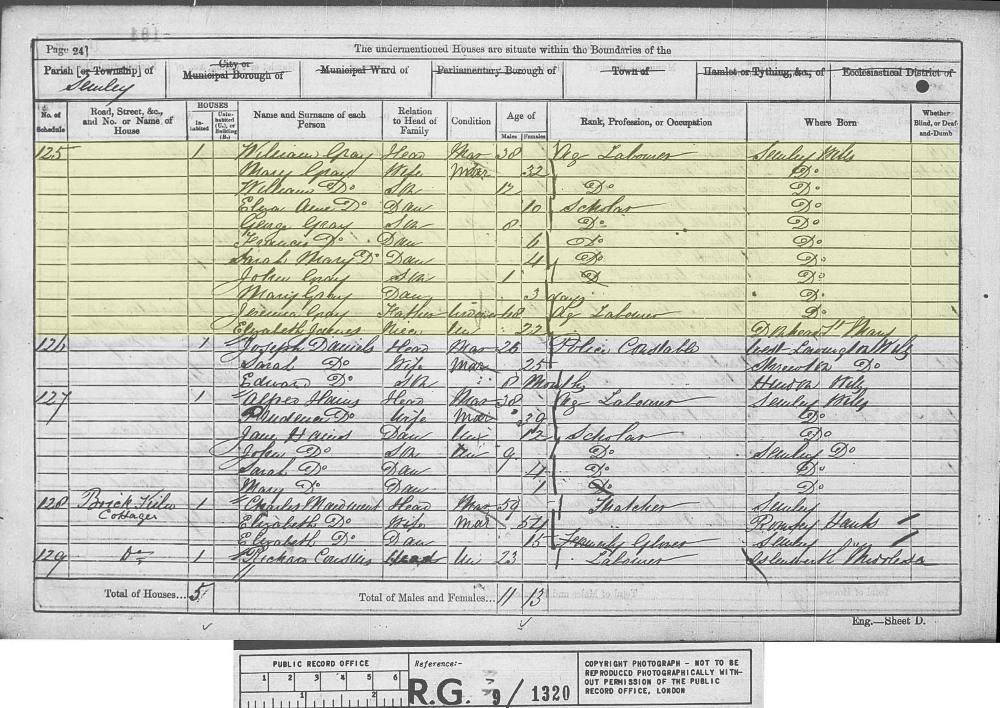 Page 24]
The undermentioned Houses are situate within the Boundaries of the
Parish [or Township] of City or Municipal Borough of Municipal Ward of Parliamentary Borough of Town of Hamlet or Tything, &c., of Ecclesiastical District of
Semley
No. of Schedule Road, Street, &c., and No. or Name of House HOUSES In-habited Unin-habited (U.), or Building (B.) Name and Surname of each Person Relation to Head of Family Condition Age of Males Females Rank, Profession, or Occupation Where Born Whether Blind, or Deaf-and-Dumb
125 1 William Gray Head Mar 38 Ag Labourer Semley Wilts
Mary Gray Wife Mar 32 Do
William Do Son 12 Do Do
Eliza Ann Do Daur 10 Scholar Do
George Gray Son 8 Do Do
Do Daur 6 Do Do
Sarah Mary Do Daur 4 Do Do
John Gray Son 1 D Do
Mary Gray Daur 3 days Do
Gray Father 68 Ag Labourer Do
Elizabeth Niece Un 22 St Mary
126 1 Joseph Daniels Head Mar 26 Police Constable West Lavington Wilts
Sarah Do Wife Mar 25 Shrewton Do
Edward Do Son 8 Months Hindon Wilts
127 1 Alfred Hains Head Mar 38 Ag Labourer Semley Wilts
Prudence Do Wife Mar 39 Do
Jane Hains Daur Un 12 Scholar Do
John Do Son Un 9 Do Semley Do
Sarah Do Daur 4 Do Do
Mary Do Daur 1 Do Do
128 Brick Kiln Cottages 1 Charles Maidment Head Mar 59 Thatcher Semley
Elizabeth Do Wife Mar 54 Romsey Hants
Elizabeth Do Daur 15 Glover Semley
129 Do 1 Richard Head Un 23 Labourer Isleworth Middlesex
Total of Houses... 5 Total of Males and Females... 11 13
Eng.—Sheet D.
PUBLIC RECORD OFFICE
1 2 3 4 5 6
1 2
Reference:-
R.G. 9 / 1320
COPYRIGHT PHOTOGRAPH - NOT TO BE
REPRODUCED PHOTOGRAPHICALLY WITH-
OUT PERMISSION OF THE PUBLIC
RECORD OFFICE, LONDON